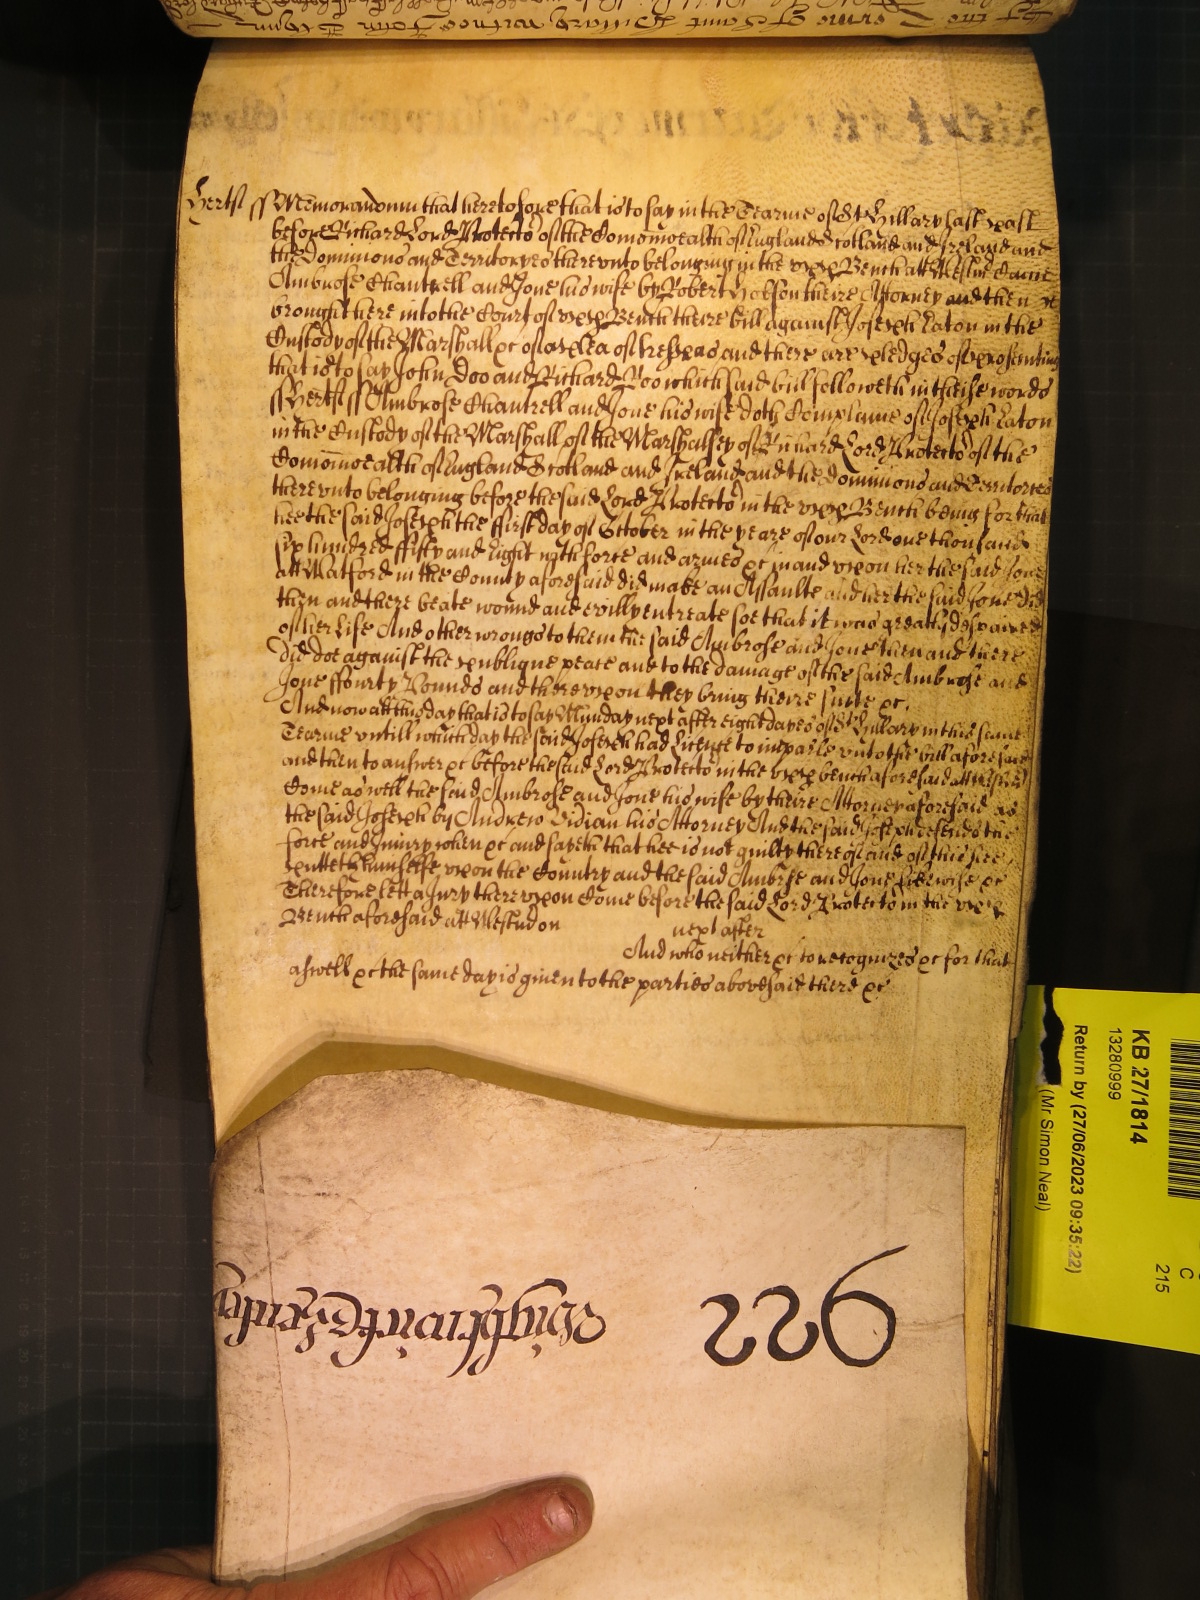 Hertf ss Memorandum that heretofore that is to say in the Tearme of St Hillary last past
before Richard Lord Protector of the Comonwealth of England Scotland and Ireland and
the Dominions and Territoryes therevnto belonging in the vpp Bench att Westmr Came
Ambrose Chantrell and Jone his wife by Robert Hobson theire Attorney and then
brought here into the Court of vpp Bench theire bill against Joseph Eaton in the
Custody of the Marshall &c of a plea of trespas and there are pledges of prosecuting
that is to say John Doo and Richard Roo which said bill followeth in theise words
ss Hertf ss Ambrose Chantrell and Jone his wife doth Complaine of Joseph Eaton
in the Custody of the Marshall of the Marshalsey of Richard Lord Protector of the
Comonwealth of England Scotland and Ireland and the dominions and Territories
therevnto belonging before the said Lord Protector in the vpp Bench being for that
hee the said Joseph the ffirst day of October in the yeare of our Lord one thousand
six hundred ffifty and Eight with force and armes &c in and vpon her the said Jone
att Watford in the County aforesaid did make an Assaulte and her the said Jone did
then and there beate wound and evilly entreate soe that it was greatly despaired
of her life And other wrongs to them the said Ambrose and Jone then and there
did doe against the publique peace and to the damage of the said Ambrose and
Jone ffourty Pounds and therevpon they bring theire suite &c.
And now att this day that is to say Munday next after eight dayes of St Hillary in this same
Tearme vntill which day the said Joseph had License to imparle vnto the bill aforesaid
and then to answer &c before the said Lord Protector in the vpp bench aforesaid att Westmr
Come as well the said Ambrose and Jone his wife by theire Attorney aforesaid as
the said Joseph by Andrew Vidian his Attorney And the said Joseph defends the
force and Iniury when &c and sayeth that hee is not guilty thereof and of this hee
putteth himselfe vpon the Country and the said Ambrose and Jone likewise &c
Therefore lett a Jury therevpon Come before the said Lord Protector in the vpp
Bench aforesaid att Westm on next after
And who neither &c to recognize &c for that
aswell &c the same day is given to the parties abovesaid there &c
922
KB 27/1814
13280999
Return by (27/06/2023 09:35:22)
(Mr Simon Neal)
C
215